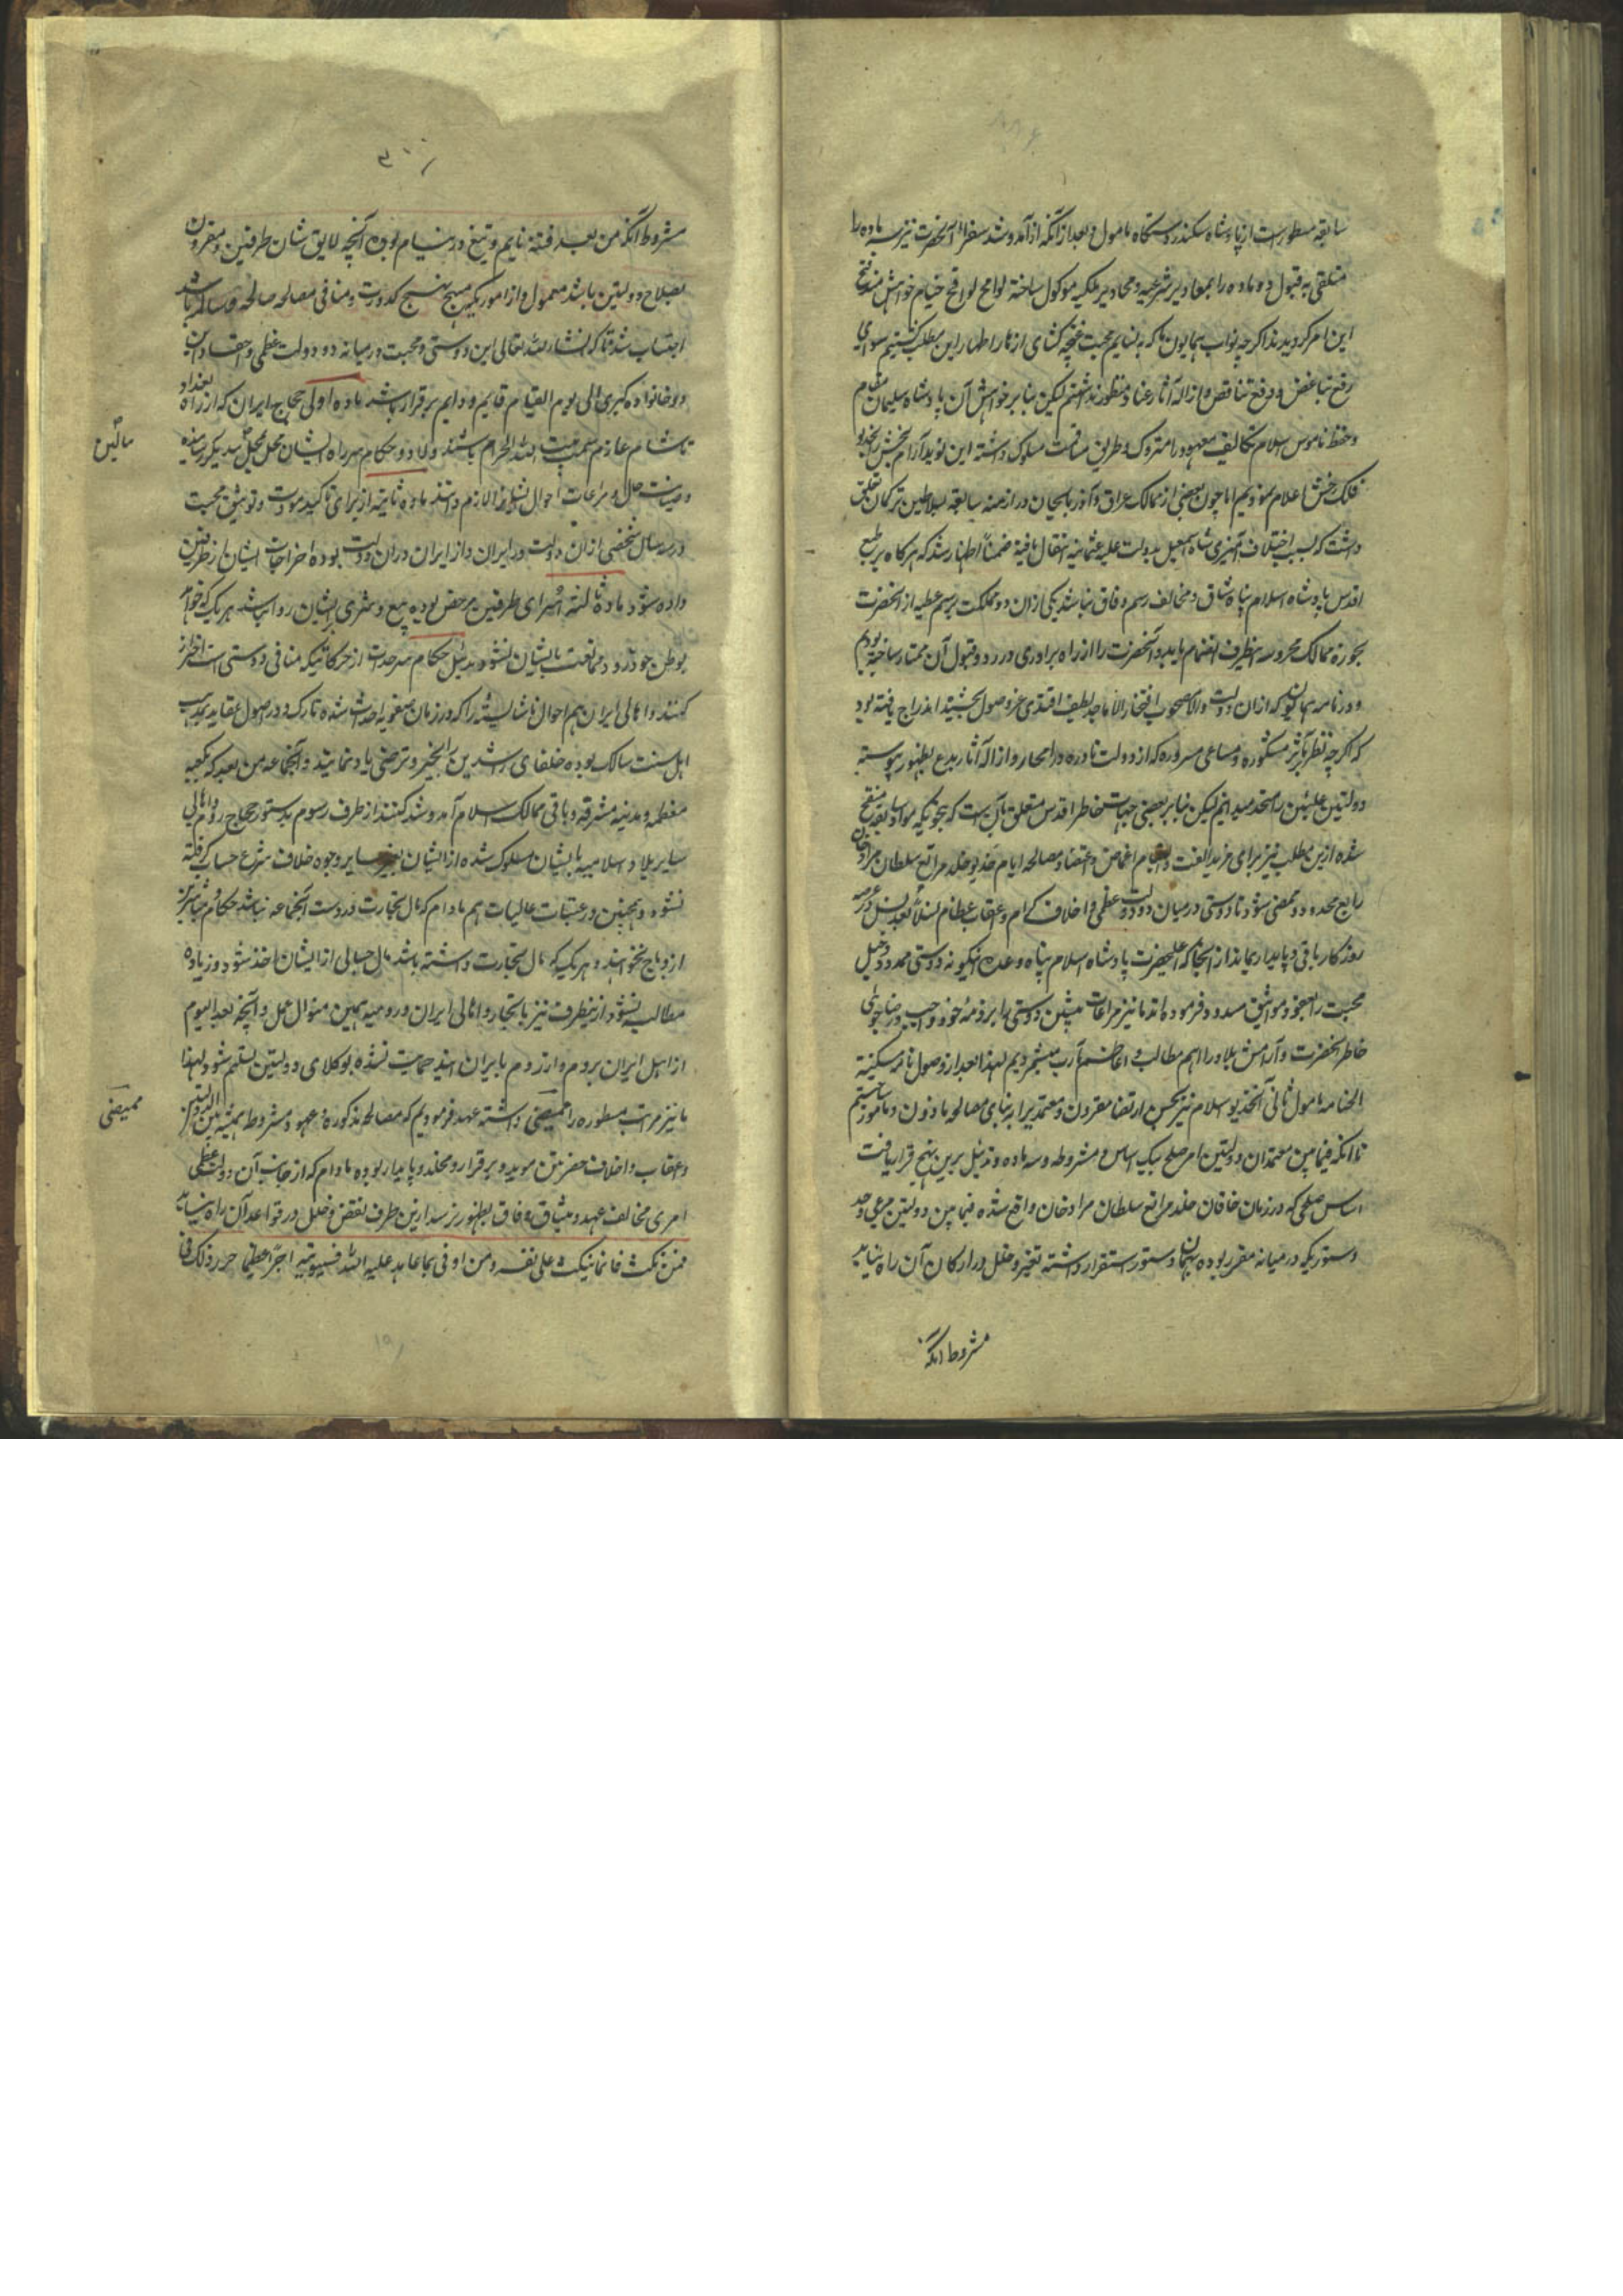 سابقه مسطورست از پادشاه سکندر دستگاه مامول و بعد از آنکه از آمد و شد سفرا آنحضرت نیز سه ماده را
متلقی به قبول و دو ماده را بمعاذیر شرعیه و محاذیر ملکیه موکول ساخته لوامح لواقح خیام خواهش
این امر گردیدند اگرچه نواب همایون ما که بنسایم محبت غنچه کشای ازهار اظهار این مطلب گشتیم سوای
رفع تباغض و دفع تناقض و ازاله آثار عناد منظور نداشتیم لیکن بنابر خواهش آن پادشاه سلیمان مقام
و حفظ ناموس اسلام تکالیف معهوده را متروک و طریق مسلوک داشته این نوید آرام بخش را بخدیو
فلک رخش اعلام نمودیم اما چون بعضی از ممالک عراق و آذربایجان در ازمنه سابقه بسلاطین ترکمان تعلق
داشت که بسبب اختلاف انگیزی شاه اسمعیل بدولت علیه عثمانیه انتقال یافته ضمناً اظهار شد که هرگاه بر طبع
اقدس پادشاه اسلام پناه شاق و مخالف رسم وفاق نباشد یکی از آن دو مملکت برسم عطیه از آنحضرت
بحوزه ممالک محروسه اینطرف انضمام یابد و آنحضرت را از راه برادری در رد و قبول آن مختار ساخته بودیم
و در نامه همایون که از آن دولت والا مصحوب افتخار الاماجد نظیف افندی عز وصول بخشید اندراج یافته بود
که اگرچه نظر بآثر مشکوره و مساعی مبروره که از دولت نادره در امحا و ازاله آثار بدع بظهور پیوسته
دولتین علیتین را متحد میدانیم لیکن بنابر بعضی جهات خاطر اقدس متعلق بآن است که بنحویکه مواد سابقه منقح
شده ازین مطلب نیز برای مزید الفت و التیام اغماض و مصالحه ایام خدیو خلد مراتع سلطان مراد خان
رابع محدود و ممضی شود تا دوستی در میان دو دولت عظمی و اخلاف کرام و اعقاب عظام نسلاً بعد نسل در عرصه
روزگار باقی و پایدار بماند از انجا که اعلیحضرت پادشاه اسلام پناه وعده اینگونه دوستی ممدود و حبل
محبت را بعقود مواثیق مسدود فرموده اند ما نیز مراعات دوستی را بر ذمه خود واجب و رضاجوئی
خاطر آنحضرت و آرامش بلاد را اهم مطالب و اعاظم مآرب میشمردیم لهذا بعد از وصول نامه سکینه
الختامه مامول ثانی آنخدیو اسلام نیز بحسن ارتضا مقرون و معتمدیرا بر بنای مصالحه ماذون و مامور ساختیم
تا آنکه فیمابین معتمدان دولتین امر صلح بیک اساس و مشروطه و سه ماده و تذییل برین نهج قرار یافت
اساس صلحی که در زمان خاقان خلد مراتع سلطان مراد خان واقع شده فیمابین دولتین مرعی و حدود
و سنوریکه در میانه مقرر بوده بهمان دستور استقرار داشته تغییر و خلل در ارکان آن راه نیابد
مشروط آنکه
مشروط آنکه من بعد فتنه نایم و تیغ در نیام بوده آنچه لایق شان طرفین و مقرون
بصلاح دولتین باشد معمول و از امور یکه مهیج کدورت و منافی مصالحه صالحه و مسالمه باشد
اجتناب شد تا که انشاء الله تعالی این دوستی و محبت در میانه دو دولت عظمی و احفاد این
دو خانواده کبری الی یوم القیام قایم و دایم برقرار باشد ماده اولی حجاج ایران که از راه بغداد
تا شام عازم بیت الله الحرام باشند ولاة و حکام سر راه ایشان محل بمحل بیکدیگر رسانیده
و صیانت حال و مراعات احوال ایشانرا لازم دانند ماده ثانیه از برای تاکید مودت و توثیق محبت
در سه سال شخصی از آن دولت در ایران و از ایران در آن دولت بوده اخراجات ایشان از طرفین
داده شود ماده ثالثه اسرای طرفین مرخص بوده بیع و شری بر ایشان روا نباشد هر یک که خواهد
بوطن خود رود ممانعت بایشان نشود تذییل حکام سرحدات از حرکاتیکه منافی دوستی است احتراز
کنند و اهالی ایران هم احوال ناشایسته را که در زمان صفویه احداث شده تارک و در اصول عقاید بمذهب
اهل سنت سالک بوده خلفای راشدین را بخیر و ترضی یاد نمایند و آنجماعه من بعد که بکعبه
معظمه و مدینه مشرفه و باقی ممالک اسلام آمد و شد کنند از طرف روم بدستور حجاج روم و اهالی
سایر بلاد اسلامیه بایشان سلوک شده از ایشان و سایر وجوه خلاف شرع حساب گرفته
نشود و همچنین در عتبات عالیات هم مادام که مال تجارت در دست آنجماعه نباشد حکام و مباشرین
ازو باج نخواهند و هر یک که مال تجارت داشته باشد مال حسابی از ایشان اخذ شود و زیاده
مطالبه نشود ازینطرف نیز با تجار و اهالی ایران و رومیه بهمین منوال عمل و آنچه بعد الیوم
از اهل ایران بروم و از روم بایران آیند حمایت نشده بوکلای دولتین تسلیم شود لهذا
ما نیز مراتب مسطوره را ممضی داشته عهد فرمودیم که مصالحه مذکوره و عهود و مشروطه همیشه بین الدولتین
و اعقاب و اخلاف حضرتین موید و برقرار و مخلد و پایدار بوده مادام که از جانب آن دولت عظمی
امری مخالف عهد و میثاق وفاق بظهور نرسد ازین طرف نقض و خلل در قواعد آن راه نیابد
فمن نکث فانما ینکث علی نفسه و من اوفی بما عاهد علیه الله فسیوتیه اجرًا عظیما حرر ذلک فی
ممیضی